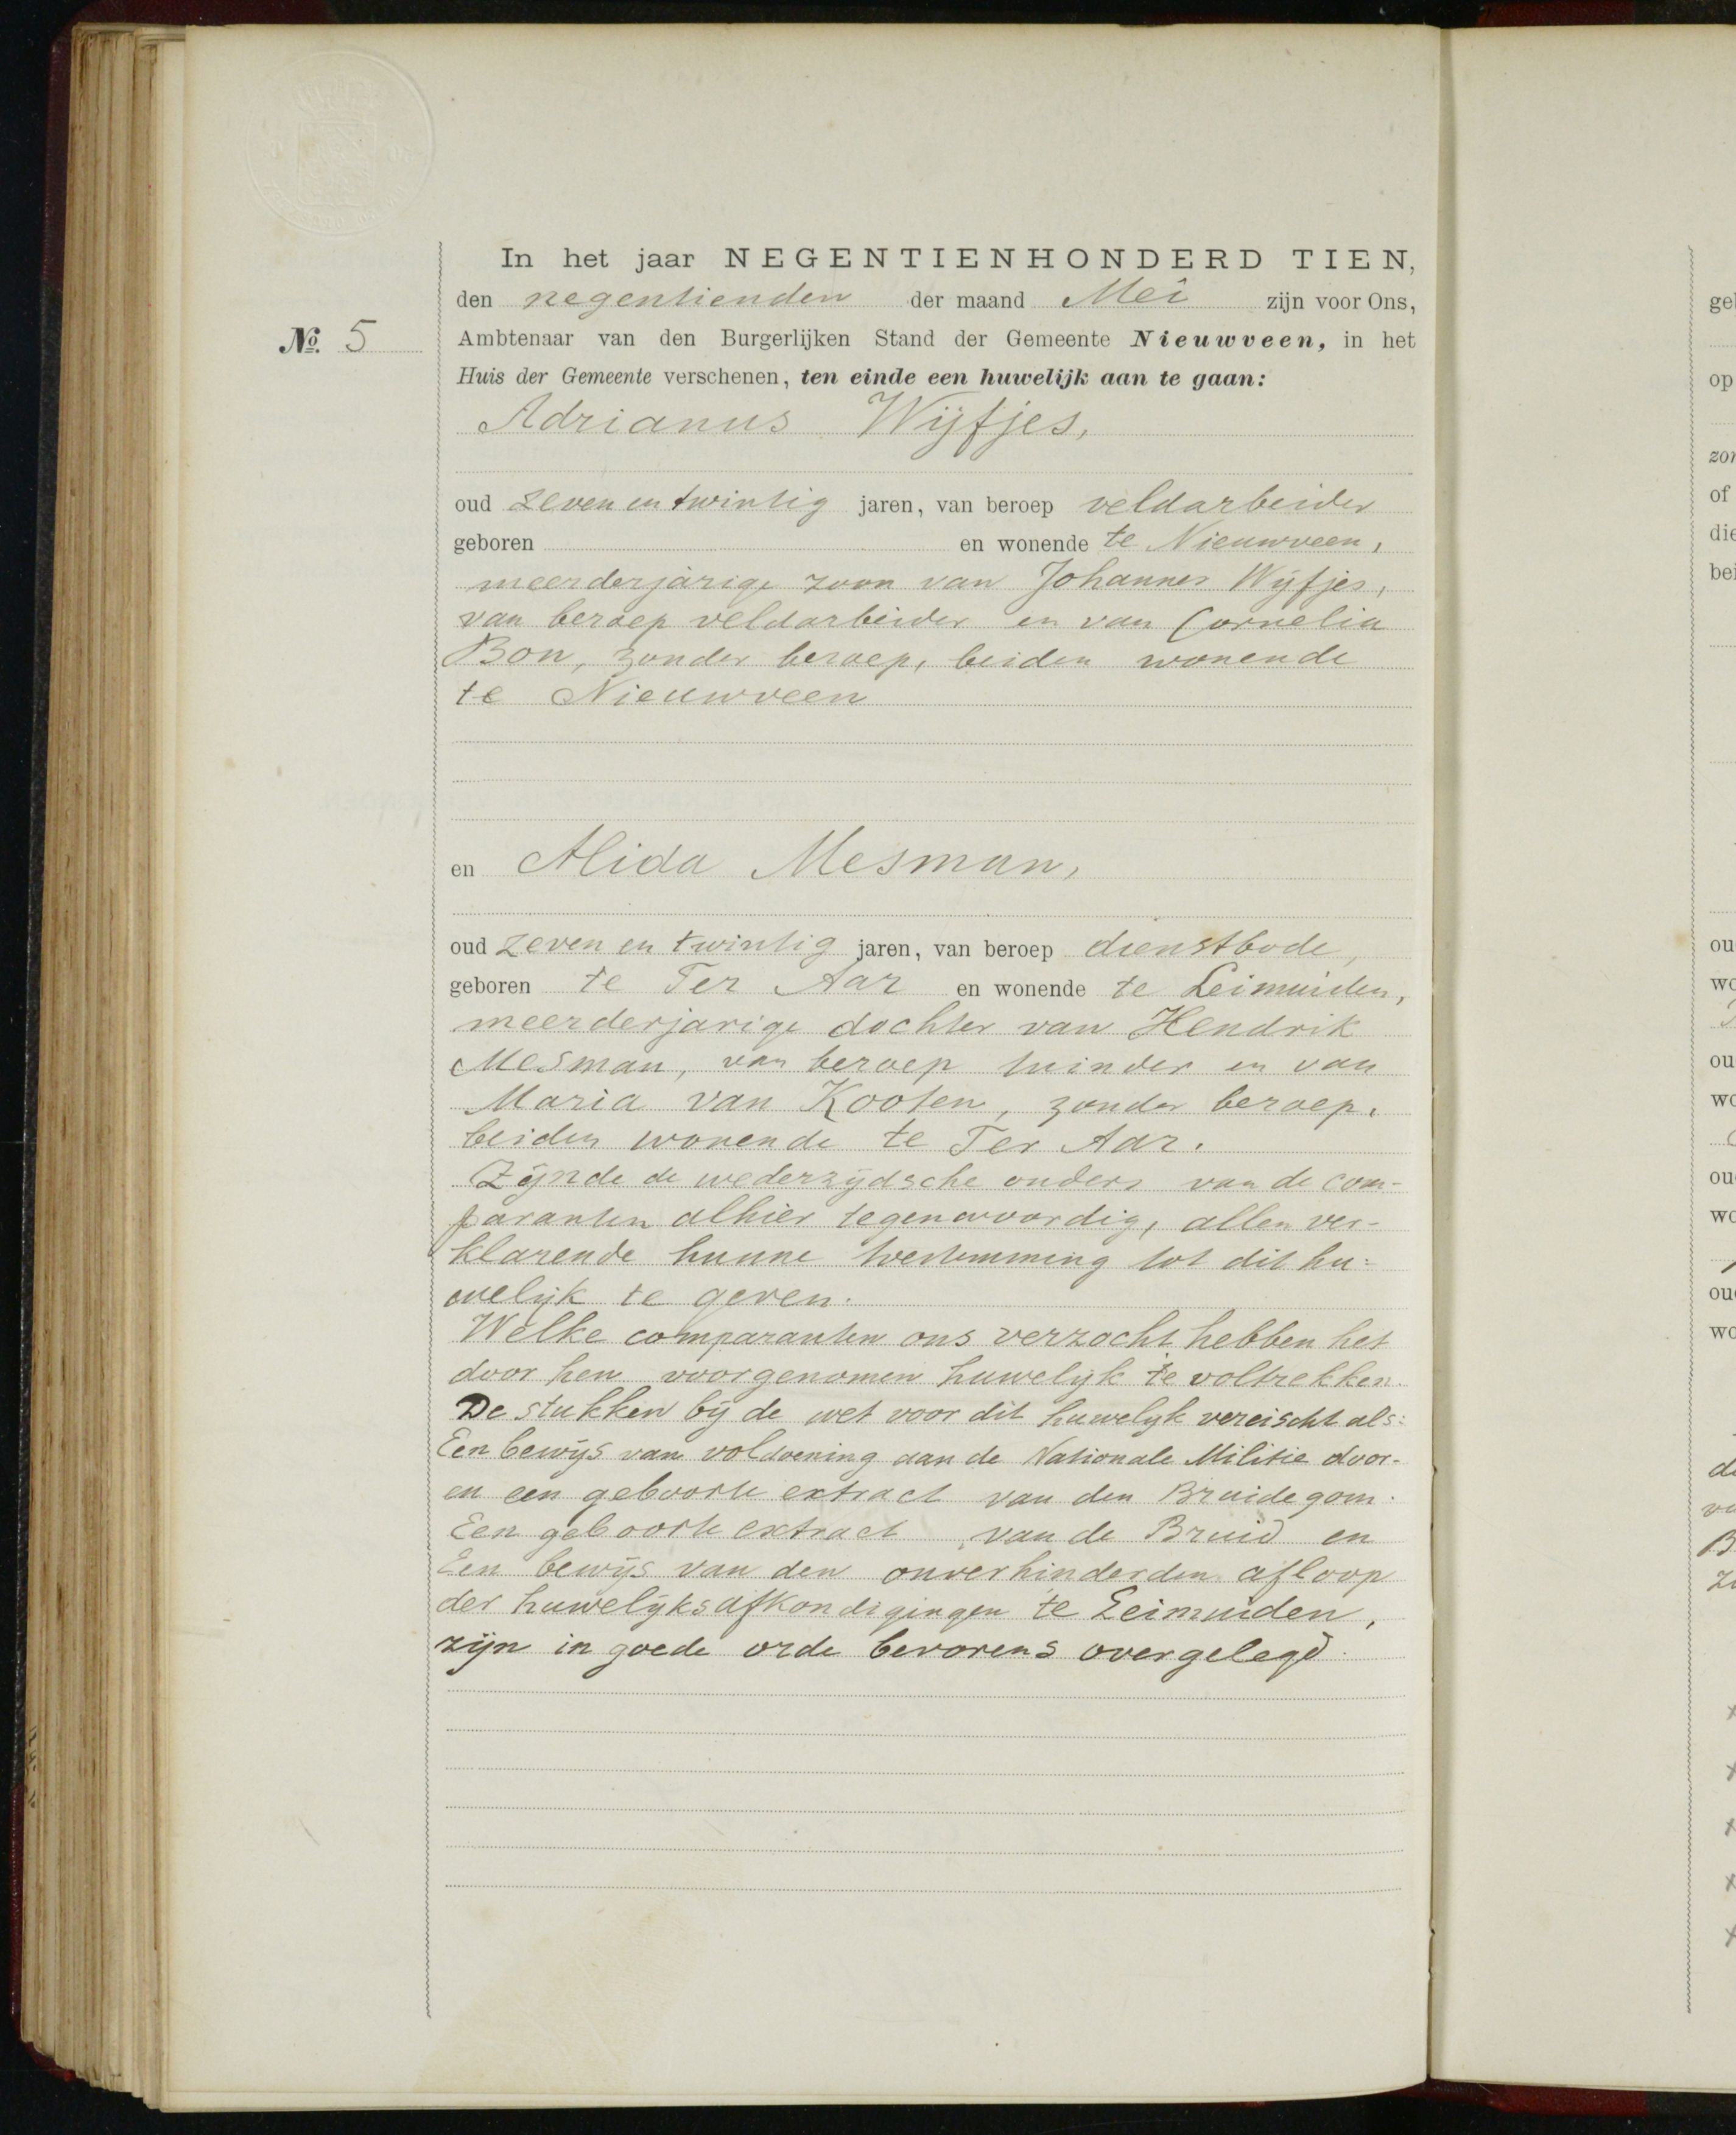 In het jaar NEGENTIENHONDERD TIEN,
den negentienden der maand Mei zijn voor Ons,
No. 5
Ambtenaar van den Burgerlijken Stand der Gemeente Nieuwveen, in het
Huis der Gemeente verschenen, ten einde een huwelijk aan te gaan:
Adrianus Wijfjes,
oud zeven en twintig jaren, van beroep veldarbeider
geboren en wonende te Nieuwveen,
meerderjarige zoon van Johannes Wijfjes,
van beroep veldarbeider en van Cornelia
Bon, zonder beroep, beiden wonende
te Nieuwveen
en Alida Mesman,
oud zeven en twintig jaren, van beroep dienstbode,
geboren te Ter Aar en wonende te Leimuiden,
meerderjarige dochter van Hendrik
Mesman, van beroep tuinder en van
Maria van Kooten, zonder beroep,
beiden wonende te Ter Aar.
Zijnde de wederzijdsche ouders van de com-
paranten alhier tegenwoordig, allen ver-
klarende hunne toestemming tot dit hu-
welijk te geven.
Welke comparanten ons verzocht hebben het
door hen voorgenomen huwelijk te voltrekken.
De stukken bij de wet voor dit huwelijk vereischt als:
Een bewijs van voldoening aan de Nationale Militie door-
en een geboorte extract van den Bruidegom.
Een geboorte extract van de Bruid en
Een bewijs van den onverhinderden afloop
der huwelijksafkondigingen te Leimuiden,
zijn in goede orde bevorens overgelegd.
ge
op
zo
of
die
be
ou
wo
ou
wo
ou
wo
ou
wo